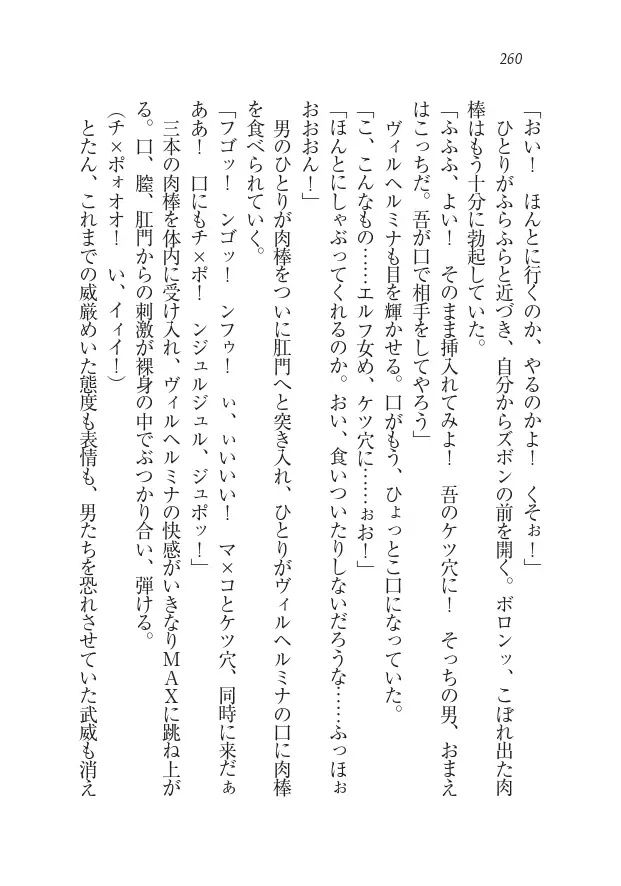 260
「おい！　ほんとに行くのか、やるのかよ！　くそぉ！」
　ひとりがふらふらと近づき、自分からズボンの前を開く。ボロンッ、こぼれ出た肉
棒はもう十分に勃起していた。
「ふふふ、よい！　そのまま挿入れてみよ！　吾のケツ穴に！　そっちの男、おまえ
はこっちだ。吾が口で相手をしてやろう」
　ヴィルヘルミナも目を輝かせる。口がもう、ひょっとこ口になっていた。
「こ、こんなもの……エルフ女め、ケツ穴に……ぉお！」
「ほんとにしゃぶってくれるのか。おい、食いついたりしないだろうな……ふっほぉ
おおおん！」
　男のひとりが肉棒をついに肛門へと突き入れ、ひとりがヴィルヘルミナの口に肉棒
を食べられていく。
「フゴッ！　ンゴッ！　ンフゥ！　ぃ、ぃいいい！　マ×コとケツ穴、同時に来だぁ
ああ！　口にもチ×ポ！　ンジュルジュル、ジュポッ！」
　三本の肉棒を体内に受け入れ、ヴィルヘルミナの快感がいきなりＭＡＸに跳ね上が
る。口、膣、肛門からの刺激が裸身の中でぶつかり合い、弾ける。
（チ×ポォオオ！　い、イィイ！）
　とたん、これまでの威厳めいた態度も表情も、男たちを恐れさせていた武威も消え